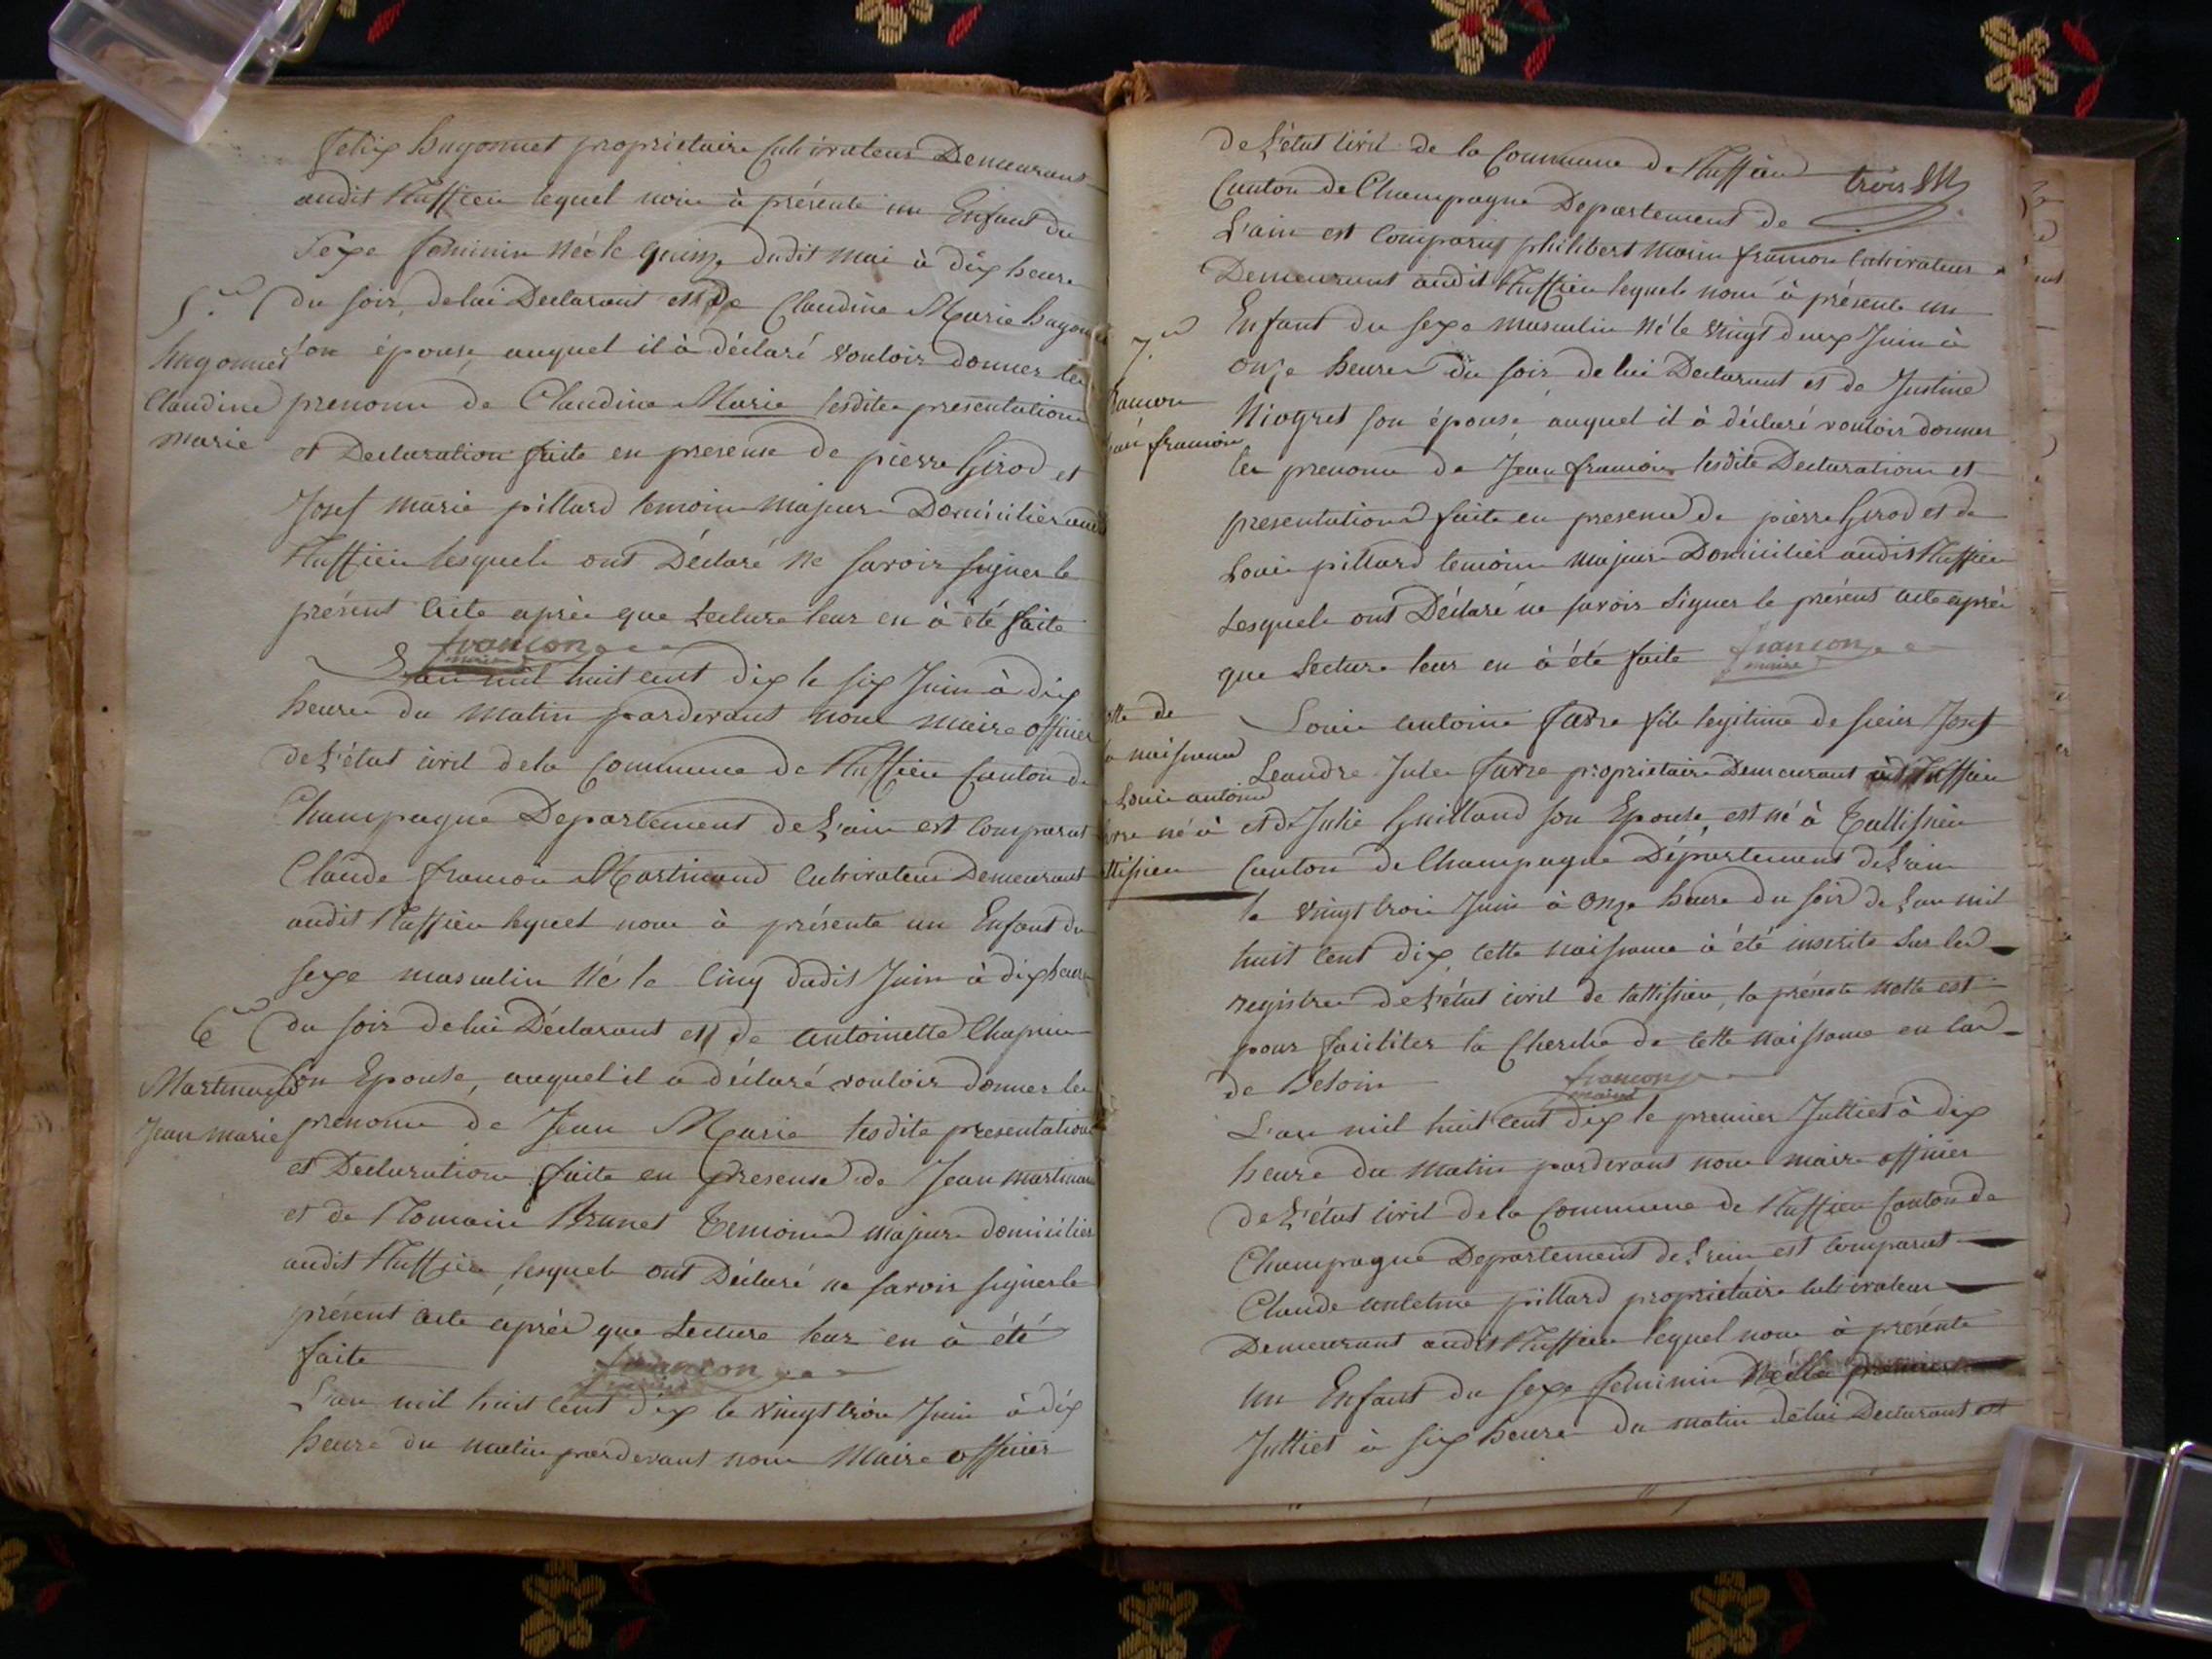 felix hugonnet proprietaire Cultivateur Demeurant
audit Ruffieu lequel nous à présenté un Enfant du
Sexe feminin Néé le quinze dudit mai à dix heure
5.e du soir, de lui Declarant et de Claudine Marie hugon
hugonnet son épouse, auquel il à déclaré vouloir donner les
Claudine prenoms de Claudine Marie lesdites presentation
marie et Declaration faite en presence de pierre Girod et
Josef marie pillard temoins majeurs Domiciliés audit
Ruffieu lesquels ont Déclaré ne savoir signer le
présent acte après que Lecture leur en à été faite
francon
maire
L'an mil huit cent dix le six Juin à dix
heure du matin pardevant nous maire officier
de L'état civil de la Commune de Ruffieu Canton de
Champagne Departement de L'ain est Comparut
Claude francois Martinand Cultivateur Demeurant
audit Ruffieu lequel nous à présenté un Enfant du
sexe masculin Né le Cinq dudit Juin à dix heure
6e du soir de lui Déclarant et de antoinette Chapuis
Martinand son Epouse, auquel il a déclaré vouloir donner les
Jean marie prenoms de Jean Marie lesdite presentation
et Declaration faite en presence de Jean martinand
et de Romain Brunet Temoins majeurs domiciliés
audit Ruffieu, lesquels ont Déclaré ne savoir signer le
présent acte après que Lecture leur en à été
faite
francon
L'an mil huit cent dix le vingt trois Juin à dix
heure du matin pardevant nous Maire officier
de L'état Civil de la Commune de Ruffieu trois
Canton de Champagne Departement de
L'ain est Comparut philibert marin francon Cultivateur
Demeurant audit Ruffieu lequel nous à présenté un
Enfant du sexe masculin Né le vingt deux Juin à
7.e onze heures du soir de lui Declarant et de Justine
francon Niogret son épouse, auquel il à déclaré vouloir donner
jean francois les prenoms de Jean francois lesdite Declaration et
presentation faite en presence de pierre Girod et de
Louis pillard temoins majeurs Domiciliés audit Ruffieu
Lesquels ont Déclaré ne savoir signer le présent acte après
que Lecture leur en à été faite francon
maire
notte de Louis antoine farre fils legitime de sieur Josef
la naissance Leandre Jules farre proprietaire Demeurant à Ruffieu
de Louis antoine et de Julie Guilland son Epouse, est né à Tallissieu
farre né à Canton de Champagne Département de L'ain
tallissieu le vingt trois Juin à onze heure du soir de L'an mil
huit Cent dix, cette naissance à été inscrite sur les
registres de L'état civil de tallissieu, la présente notte est
pour faciliter la Cherche de cette naissance en Cas
de Besoin francon
maire
L'an mil huit cent dix le premier Julliet à dix
heure du matin pardevant nous maire officier
de L'état Civil de la Commune de Ruffieu Canton de
Champagne Departement de L'ain est comparut
Claude antelme pillard proprietaire Cultivateur
Demeurant audit Ruffieu lequel nous à présenté
un Enfant du sexe feminin Néé le premier
Julliet à six heure du matin de lui Declarant et